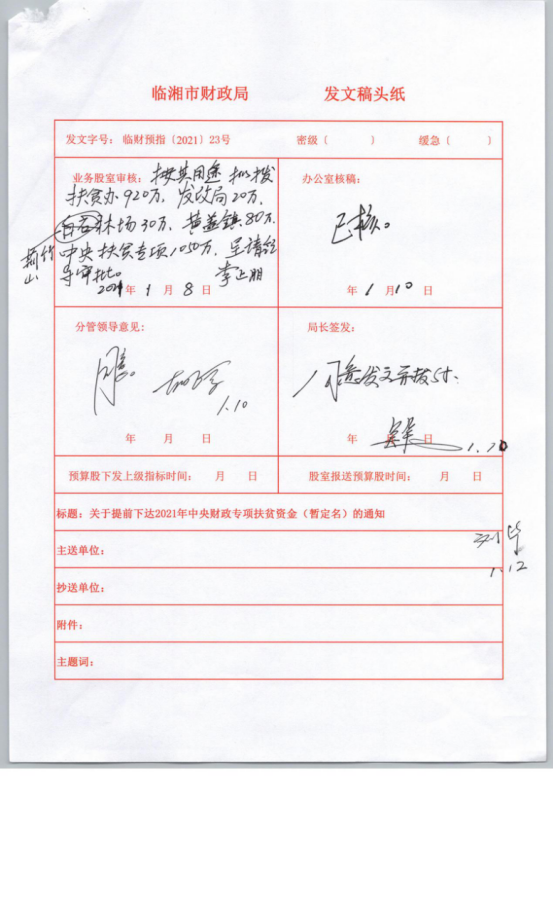 临湘市财政局 发文稿头纸
发文字号：临财预指〔2021〕23号 密级（ ） 缓急（ ）
业务股室审核：按其用途拟拨
扶贫办920万，发改局20万，
白石林场30万，黄盖镇80万，
荆竹山
中央扶贫专项1050万，呈请领
导审批。
2021年1月8日
办公室核稿：
已核。
年1月10日
分管领导意见：
同意。
1.10
年 月 日
局长签发：
同意发文并拨付。
年 月 日
1.10
预算股下发上级指标时间： 月 日 股室报送预算股时间： 月 日
标题：关于提前下达2021年中央财政专项扶贫资金（暂定名）的通知
主送单位：
1.12
抄送单位：
附件：
主题词：